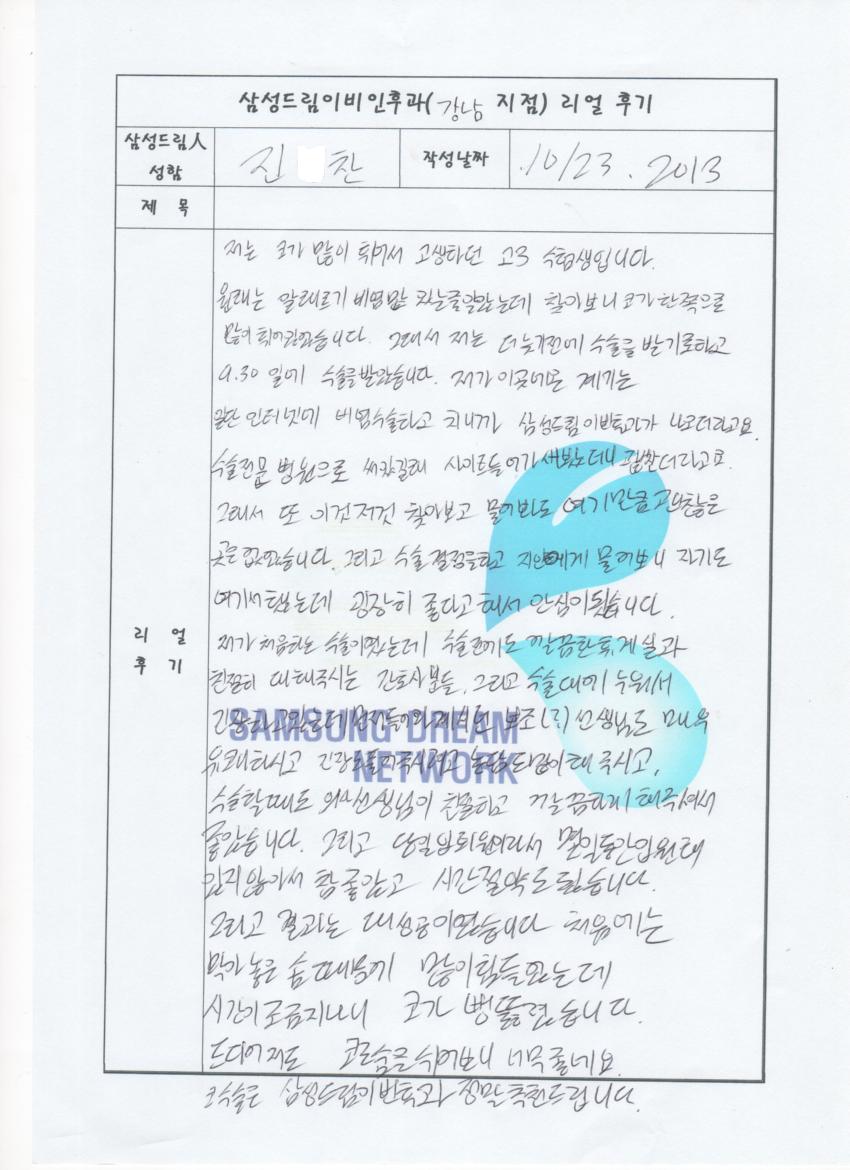 삼성드림이비인후과(강남 지점) 리얼 후기
삼성드림人 성함 진 찬 작성날짜 10/23. 2013
제 목
리 얼 후 기
저는 코가 많이 휘어서 고생하던 고3 수험생입니다.
원래는 알레르기 비염만 있는줄알았는데 찾아보니 코가 한쪽으로
많이 휘어있었습니다. 그래서 저는 더 늦기전에 수술을 받기로하고
9.30 일에 수술을받았습니다. 제가 이곳에온 계기는
일단 인터넷에 비염수술하고 치니까 삼성드림이비인후과가 나오더라고요.
수술전문 병원으로 사이트들어가 괜찮더라고요.
그래서 또 이것저것 찾아보고 물어봐도 여기만큼 괜찮은
곳은 없었습니다. 그리고 수술 결정을하고 지인에게 물어보니 자기도
여기서 했는데 굉장히 좋다고 해서 안심이됬습니다.
제가 처음하는 수술이였는데 수술전에도 깔끔한 휴게실과
친절히 대해주시는 간호사분들, 그리고 수술대에 누워서
보조(?)선생님도 매우
유쾌하시고 농담도많이해 주시고,
수술할때도 의사선생님이 친절하고 깔끔하게 해주셔서
좋았습니다. 그리고 당일입퇴원이라서 몇일동안입원해
있지않아서 참좋았고 시간절약도 됬습니다.
그리고 결과는 대성공이였습니다 처음에는
막아 놓은 솜때문에 많이힘들었는데
시간이조금지나니 코가 뻥뚫렸습니다.
드디어저도 코로숨을쉬어보니 너무좋네요.
코수술은 삼성드림이비인후과 정말추천드립니다.
SAMSUNG DREAM
NETWORK